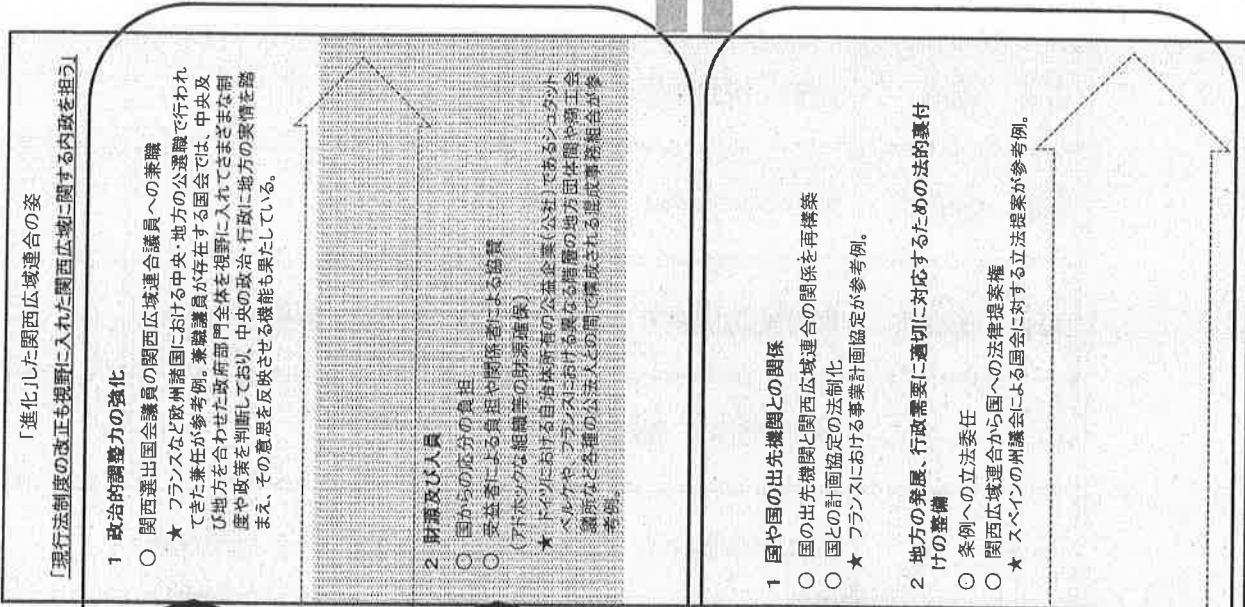 「進化」した関西広域連合の姿
「現行法制度の改正も視野に入れた関西広域に関する内政を担う」
1 政治的調整力の強化
○ 関西選出国会議員の関西広域連合議員への兼職
★ フランスなど欧州諸国における中央・地方の公選職で行われ
てきた兼任が参考例。兼職議員が存在する国会では、中央及
び地方を合わせた政府部門全体を視野に入れてさまざまな制
度や政策を判断しており、中央の政治・行政に地方の実情を踏
まえ、その意思を反映させる機能も果たしている。
2 財源及び人員
○ 国からの応分の負担
○ 受益者による負担や関係者による協賛
(アドホックな組織等の財源確保)
★ ドイツにおける自治体所有の公益企業(公社)であるシュタット
ベルケや、フランスにおける異なる階層の地方団体間や商工会
議所など各種の公法人との間で構成される混成事務組合が参
考例。
1 国や国の出先機関との関係
○ 国の出先機関と関西広域連合の関係を再構築
○ 国との計画協定の法制化
★ フランスにおける事業計画協定が参考例。
2 地方の発展、行政需要に適切に対応するための法的裏付
けの整備
○ 条例への立法委任
○ 関西広域連合から国への法律提案権
★ スペインの州議会による国会に対する立法提案が参考例。